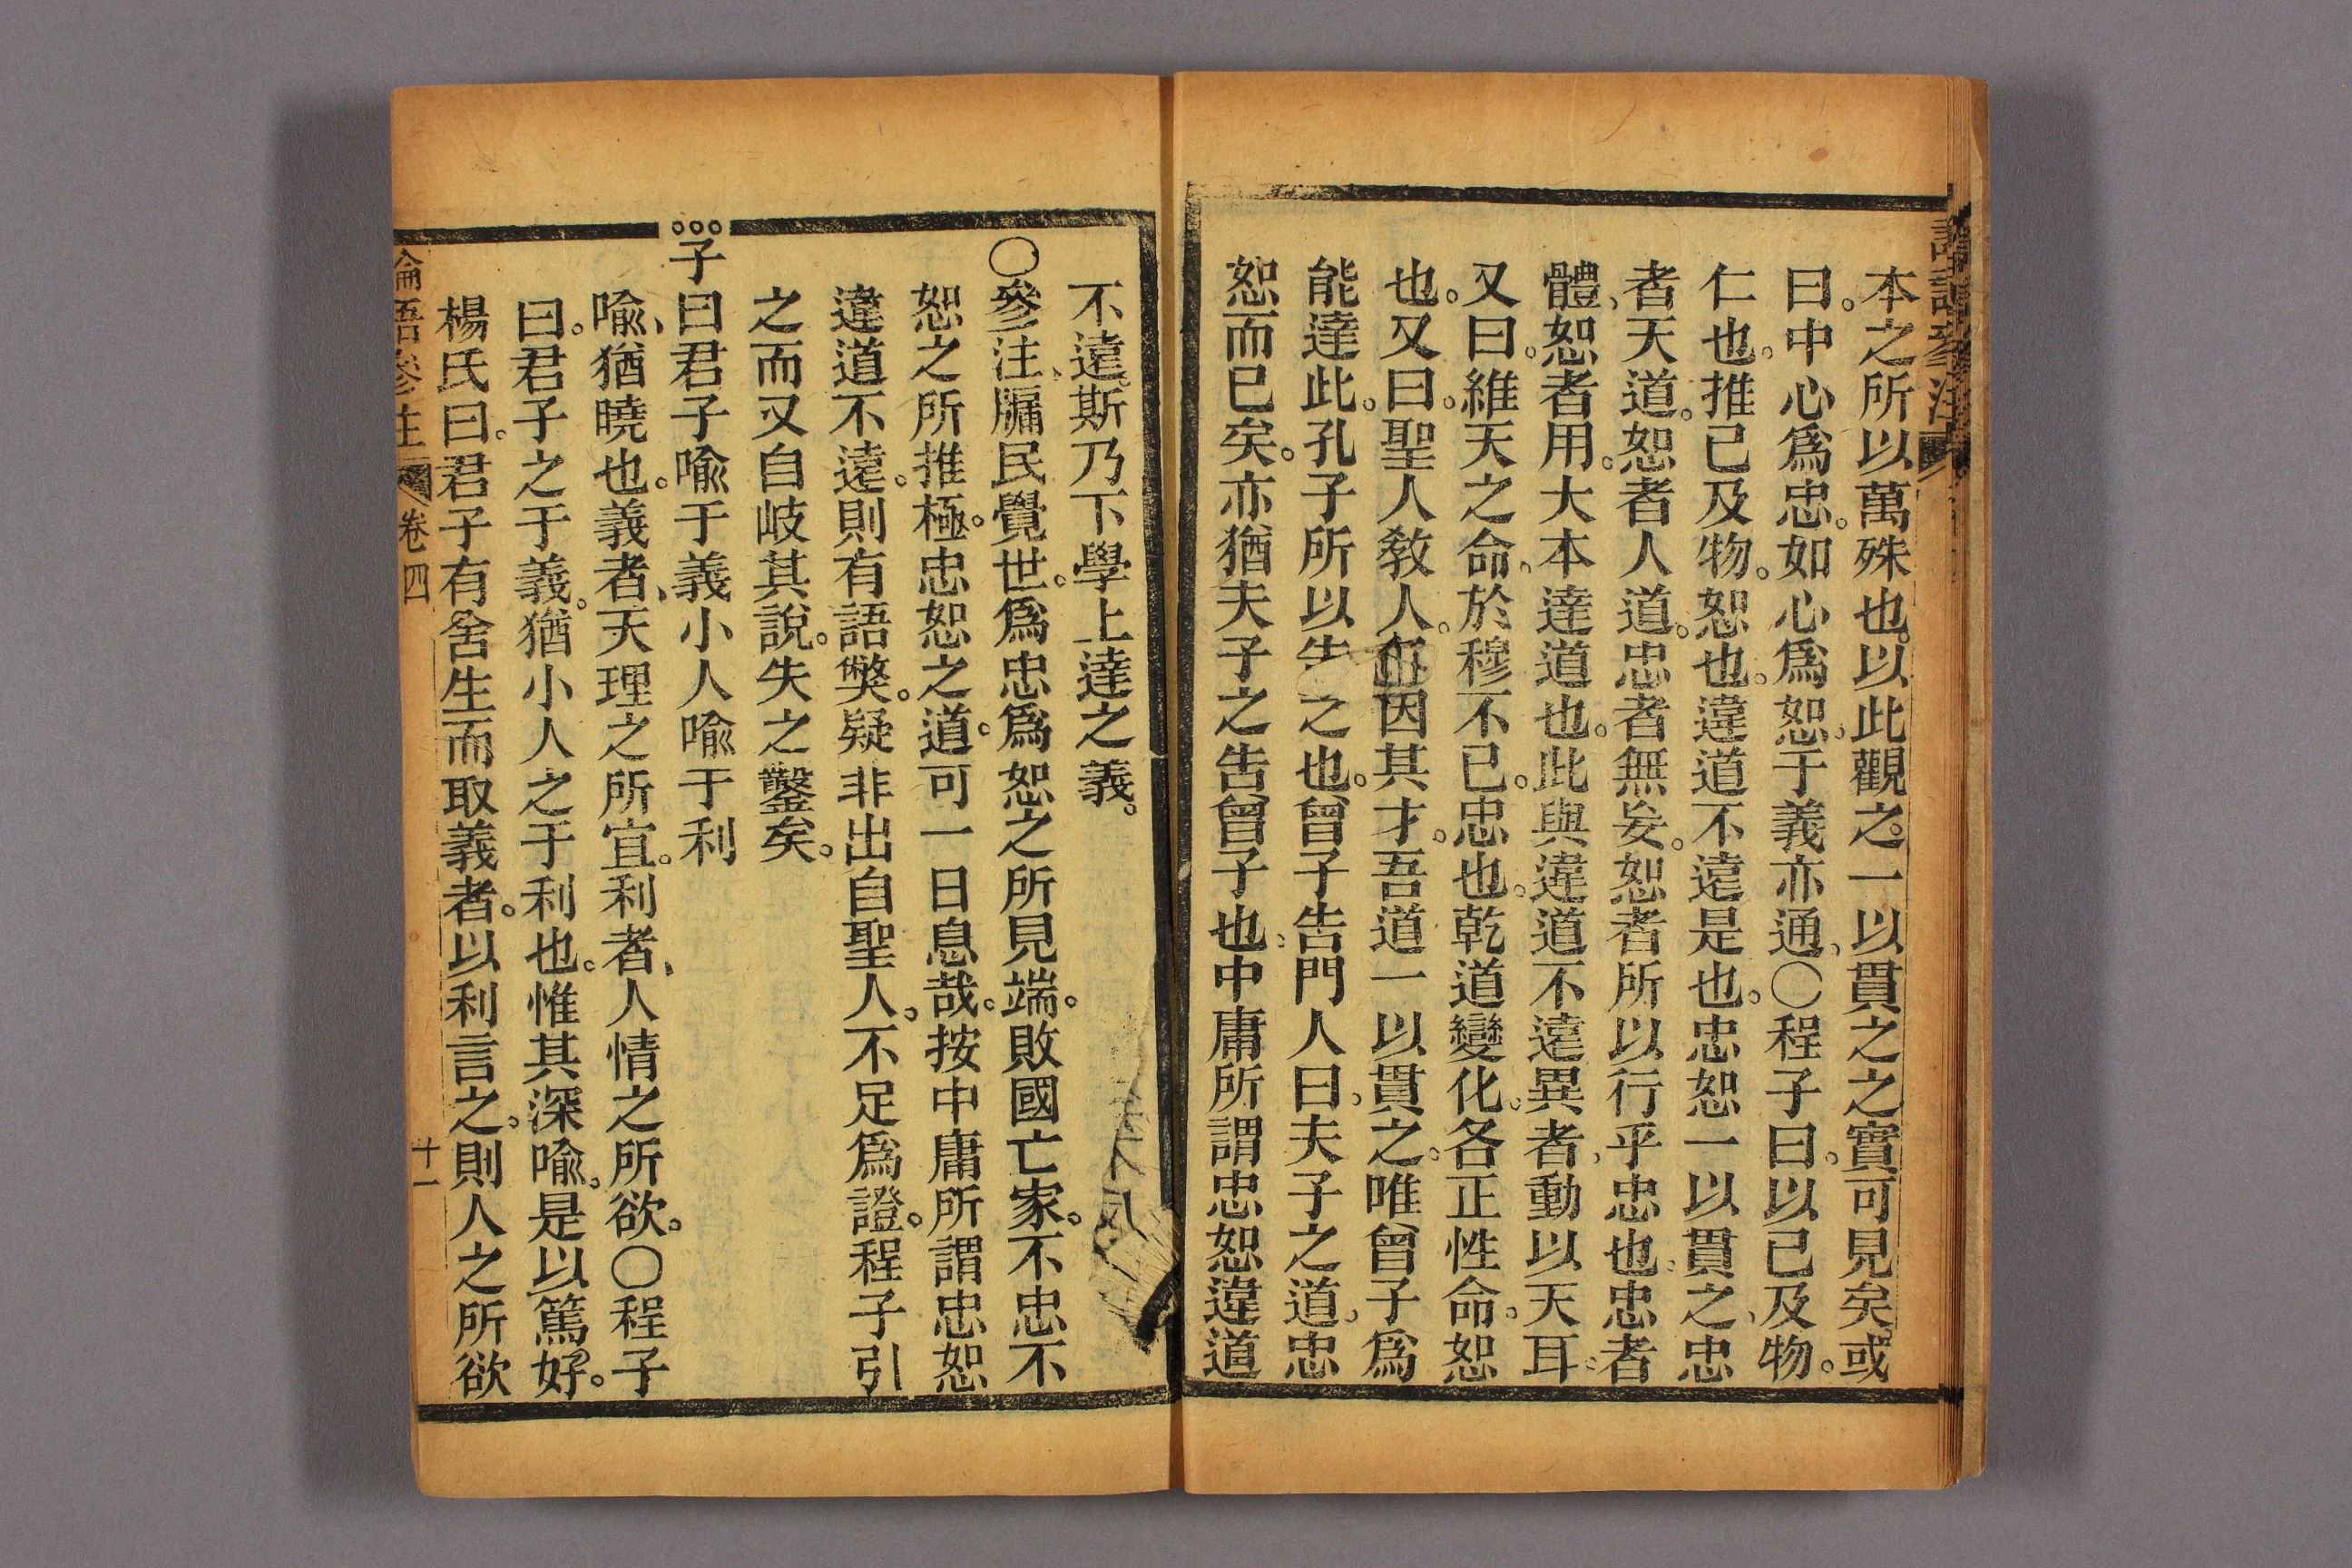 本之所以萬殊也。以此觀之。一以貫之之實可見矣。或
曰。中心爲忠。如心爲恕、于義亦通、○程子曰。以己及物。
仁也。推己及物。恕也。違道不遠是也。忠恕一以貫之、忠
者天道。恕者人道。忠者無妄。恕者所以行乎忠也。忠者
體、恕者用。大本達道也。此與違道不遠異者、動以天耳。
又曰。維天之命、於穆不已。忠也。乾道變化。各正性命。恕
也。又曰。聖人敎人。各因其才。吾道一以貫之。唯曾子爲
能達此。孔子所以告之也。曾子告門人曰、夫子之道、忠
恕而已矣。亦猶夫子之告曾子也、中庸所謂忠恕違道
不遠。斯乃下學上達之義。
○參注、牖民覺世。爲忠爲恕之所見端。敗國亡家。不忠不
恕之所推極。忠恕之道。可一日息哉。按中庸所謂忠恕
違道不遠。則有語獘。疑非出自聖人。不足爲證。程子引
之而又自岐其說。失之鑿矣。
子曰君子喩于義小人喩于利
喩、猶曉也。義者、天理之所宜。利者、人情之所欲。○程子
曰。君子之于義。猶小人之于利也。惟其深喩。是以篤好。
楊氏曰。君子有舍生而取義者。以利言之。則人之所欲
論語參注
卷四
十一